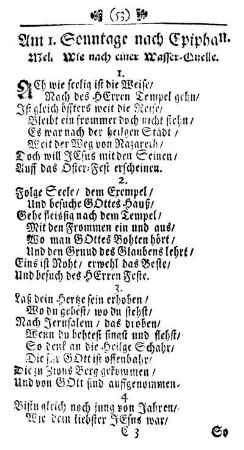 (53)
Am 1. Sonntage nach Epiphan.
Mel. Wie nach einer Wasser-Quelle.
1.
ACh wie seelig ist die Weise/
Nach des HErren Tempel gehn/
Ist gleich öfters weit die Reise/
Bleibt ein frommer doch nicht stehn/
Es war nach der heilgen Stadt/
Weit der Weg von Nazareth/
Doch will JEsus mit den Seinen/
Auff das Oster-Fest erscheinen.
2.
Folge Seele/ dem Exempel/
Und besuche GOttes Hauß/
Gehe fleissig nach dem Tempel/
Mit den Frommen ein und aus/
Wo man GOttes Bohten hört/
Und den Grund des Glaubens lehrt/
Eins ist Noht/ erwehl das Beste/
Und besuch des HErren Feste.
3.
Laß dein Hertze sein erhoben/
Wo du gehest/ wo du stehst/
Nach Jerusalem/ das droben/
Wenn du behtest singst und flehst/
So denk an die Heilge Schahr/
Die GOtt ist offenbahr/
Die zu Zions Berg gekommen/
Und von GOtt sind auffgenommen.
4
Bistu gleich noch jung von Jahren/
Wie dem liebster JEsus war/
C 3 So